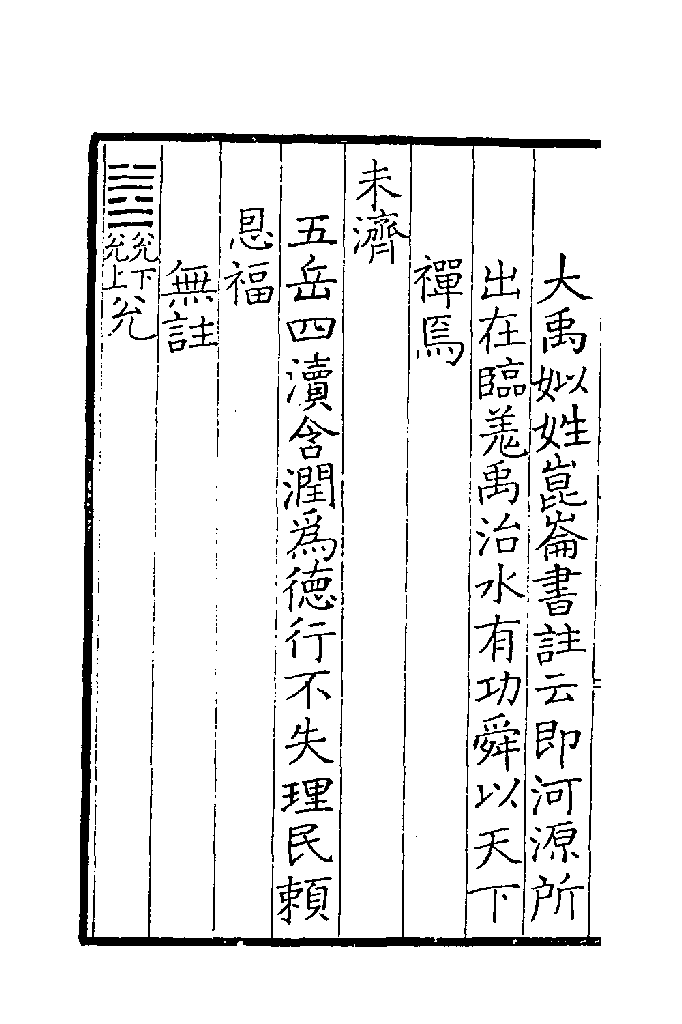 大禹姒姓崑崙書註云即河源所
出在臨羗禹治水有功舜以天下
禪焉
未濟
五岳四瀆含潤爲徳行不失理民頼
恩福
無註
䷹兊下兊上兊